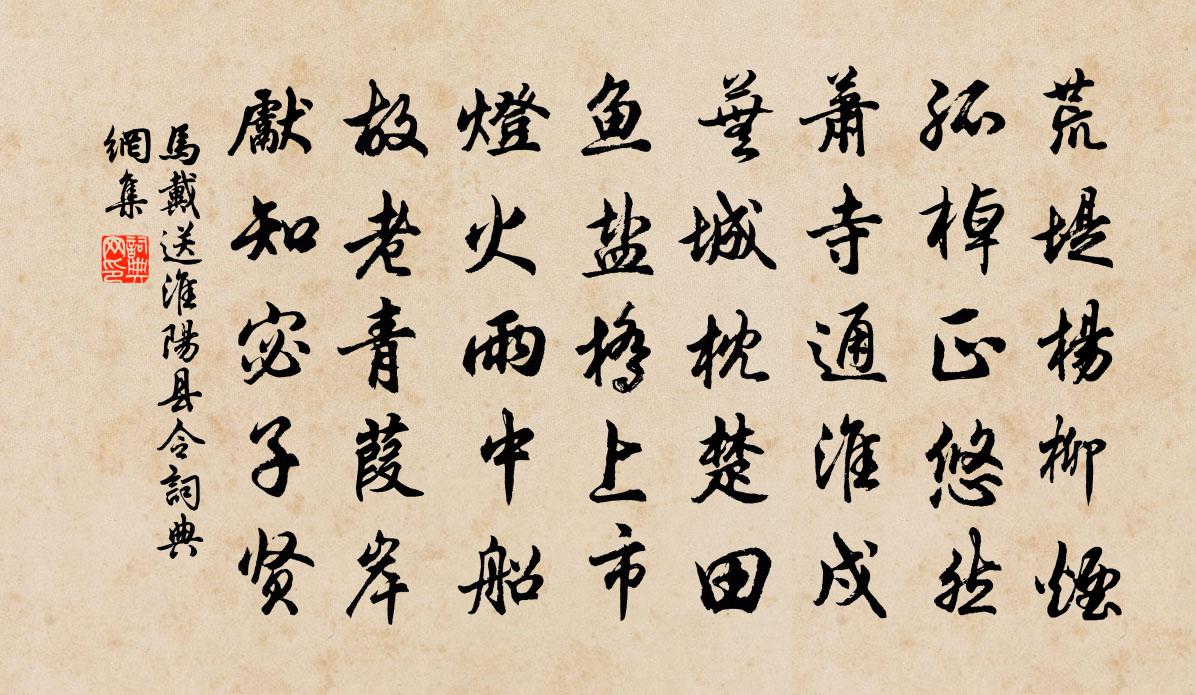 荒堤楊柳煙
孤棹正悠然
蕭寺通淮戍
蕪城枕楚田
鱼盐橋上市
燈火雨中船
故老青葭岸
獻知宓子贤
馬戴送淮陽县令詞典
網集
詞典
网印